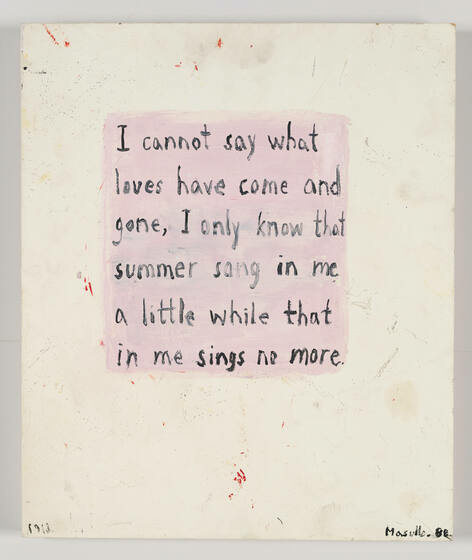 I cannot say what
loves have come and
gone, I only know that
summer sang in me
a little while that
in me sings no more.